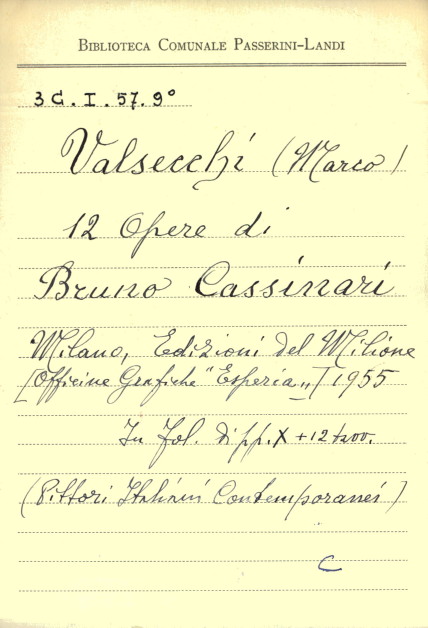 BIBLIOTECA COMUNALE PASSERINI-LANDI
3 G. I. 57. 9°
Valsecchi (Marco)
12 Opere di
Bruno Cassinari
Milano, Edizioni del Milione
[Officine Grafiche "Esperia"] 1955
In fol. di pp. X + 12 tavv.
(Pittori Italiani Contemporanei)
C